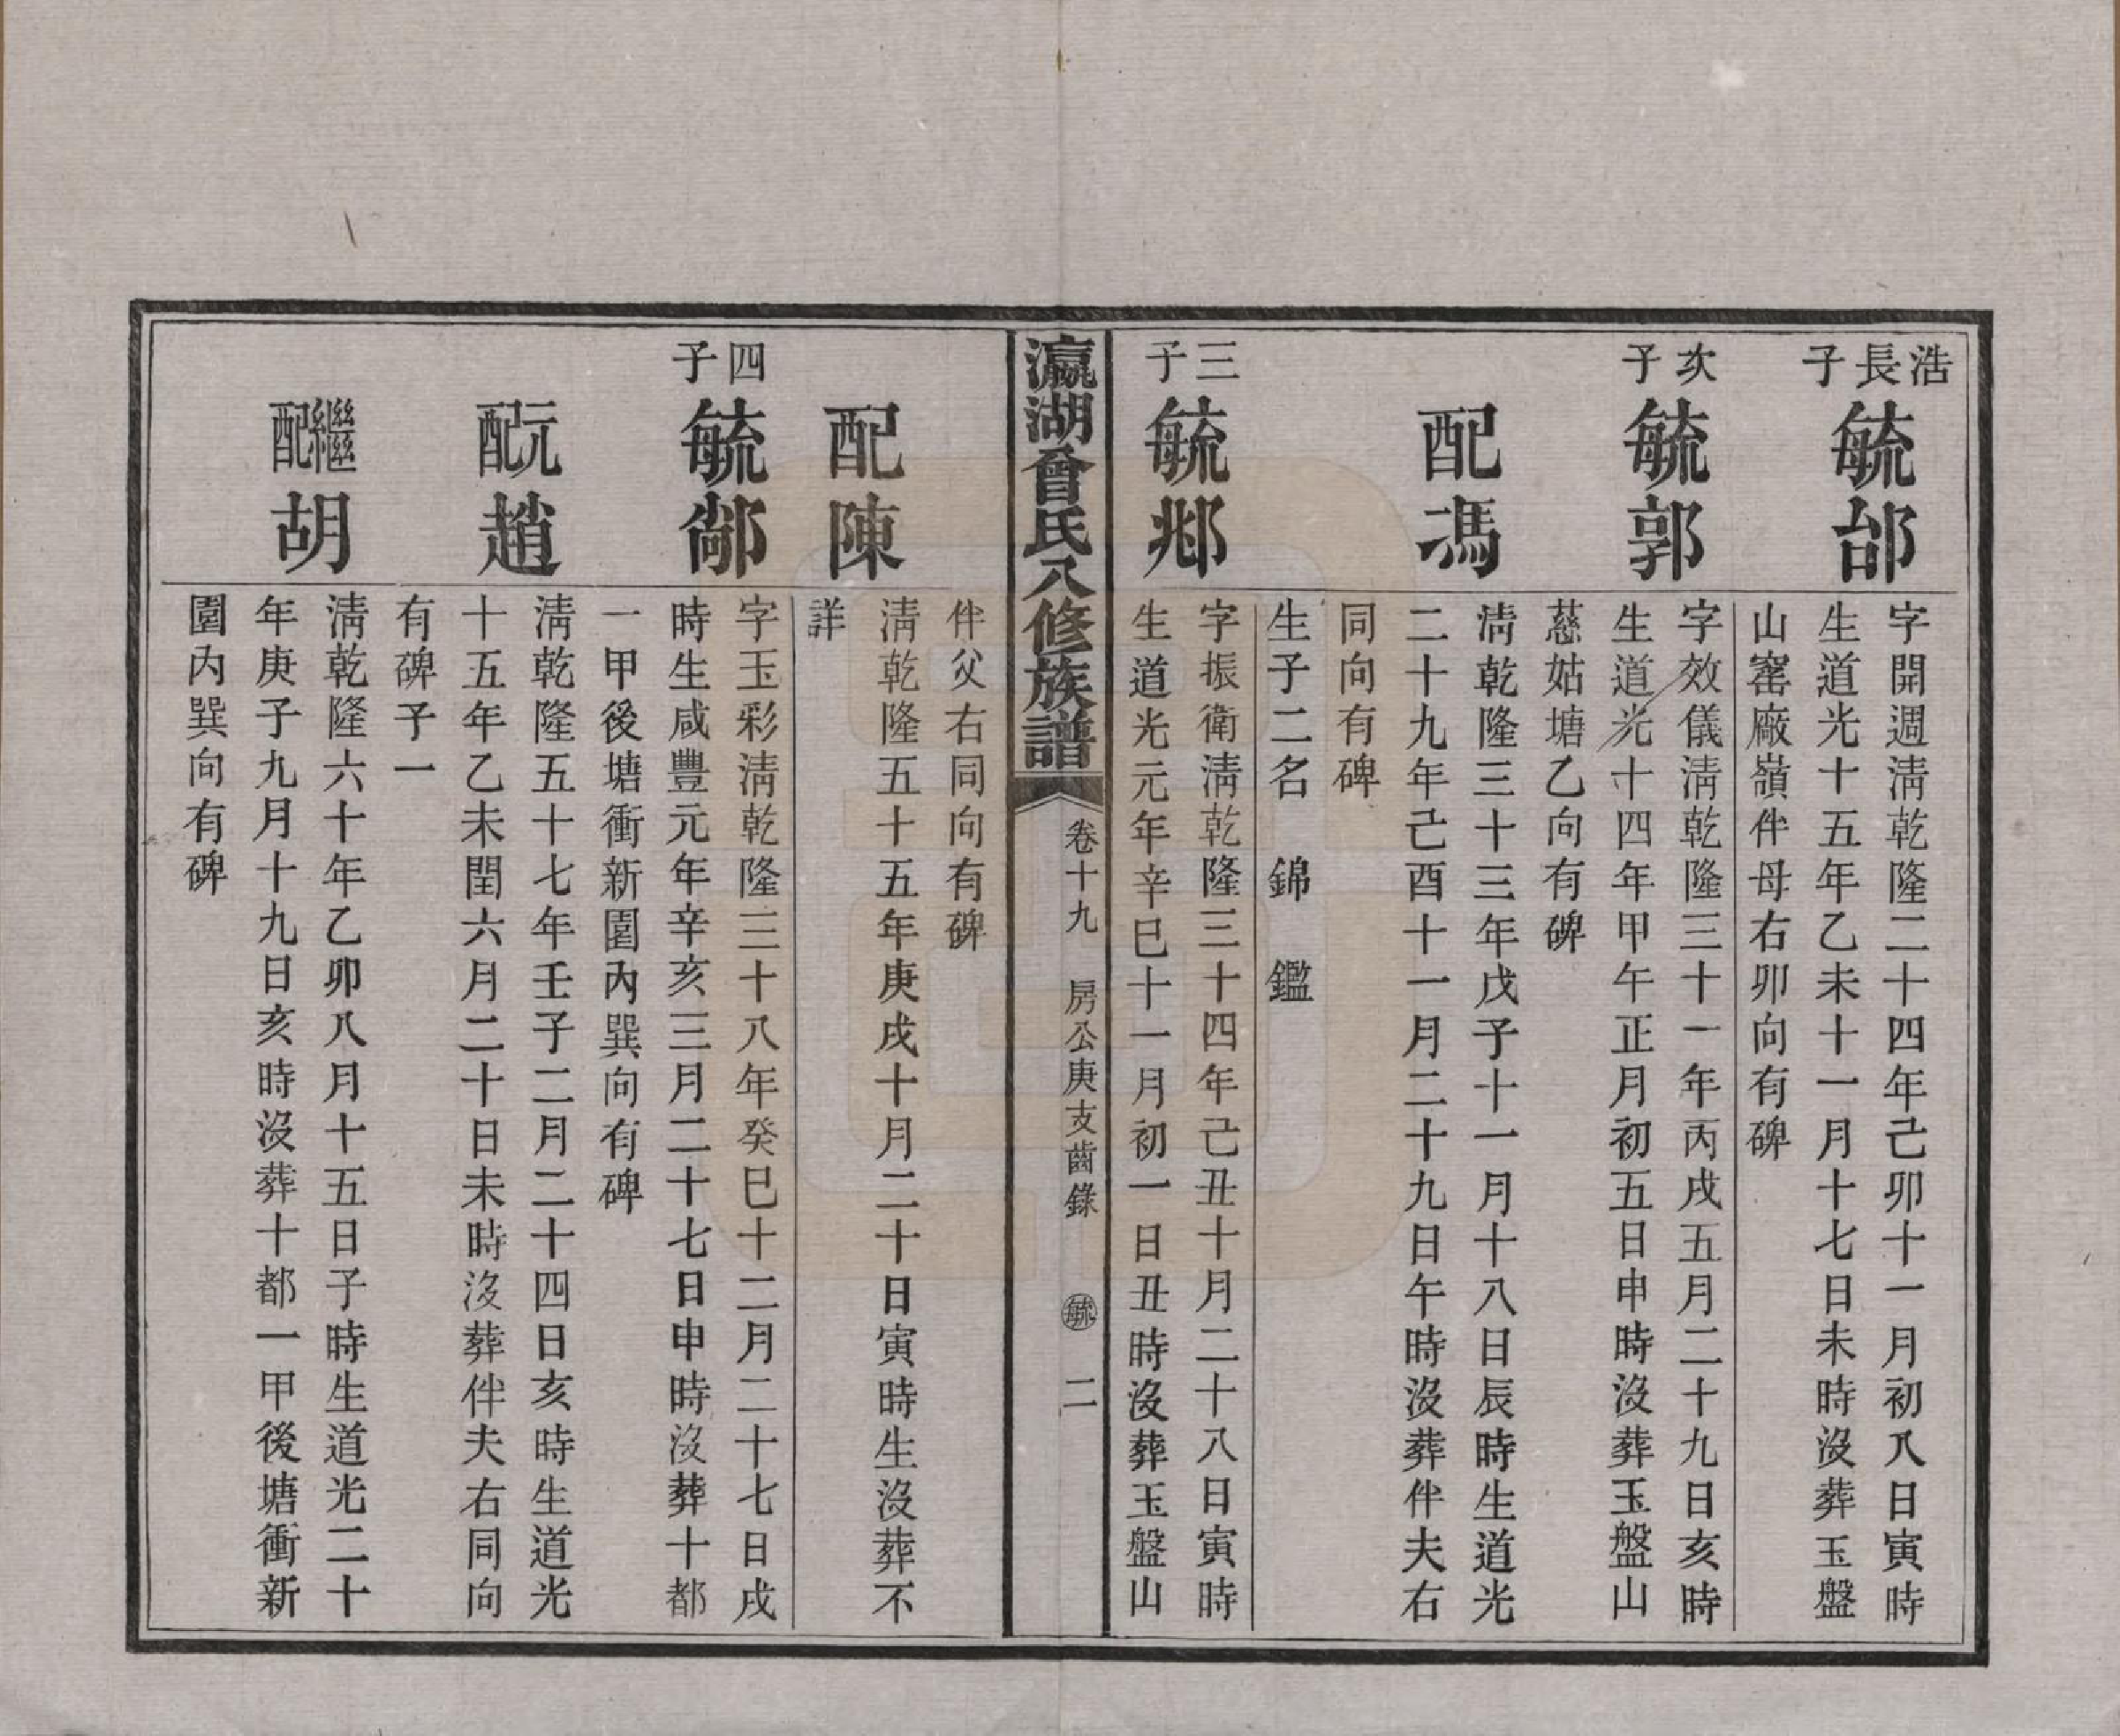 浩長子
毓邰
字開週淸乾隆二十四年己卯十一月初八日寅時
生道光十五年乙未十一月十七日未時沒葬玉盤
山窰廠嶺伴母右卯向有碑
次子
毓郭
字效儀淸乾隆三十一年丙戌五月二十九日亥時
生道光十四年甲午正月初五日申時沒葬玉盤山
慈姑塘乙向有碑
配馮
淸乾隆三十三年戊子十一月十八日辰時生道光
二十九年己酉十一月二十九日午時沒葬伴夫右
同向有碑
生子二名 錦 鑑
三子
毓邺
字振衛淸乾隆三十四年己丑十月二十八日寅時
生道光元年辛巳十一月初一日丑時沒葬玉盤山
瀛湖曾氏八修族譜
卷十九 房公庚支齒錄 毓 二
伴父右同向有碑
配陳
淸乾隆五十五年庚戌十月二十日寅時生沒葬不
詳
四子
毓鄗
字玉彩淸乾隆三十八年癸巳十二月二十七日戌
時生咸豐元年辛亥三月二十七日申時沒葬十都
一甲後塘衝新園內巽向有碑
元配趙
淸乾隆五十七年壬子二月二十四日亥時生道光
十五年乙未閏六月二十日未時沒葬伴夫右同向
有碑子一
繼配胡
淸乾隆六十年乙卯八月十五日子時生道光二十
年庚子九月十九日亥時沒葬十都一甲後塘衝新
園內巽向有碑